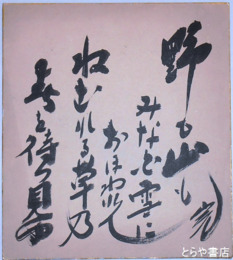 野も山も
みな雪に
おほわれて
ねむれる草乃
春を待つ
とらや書店